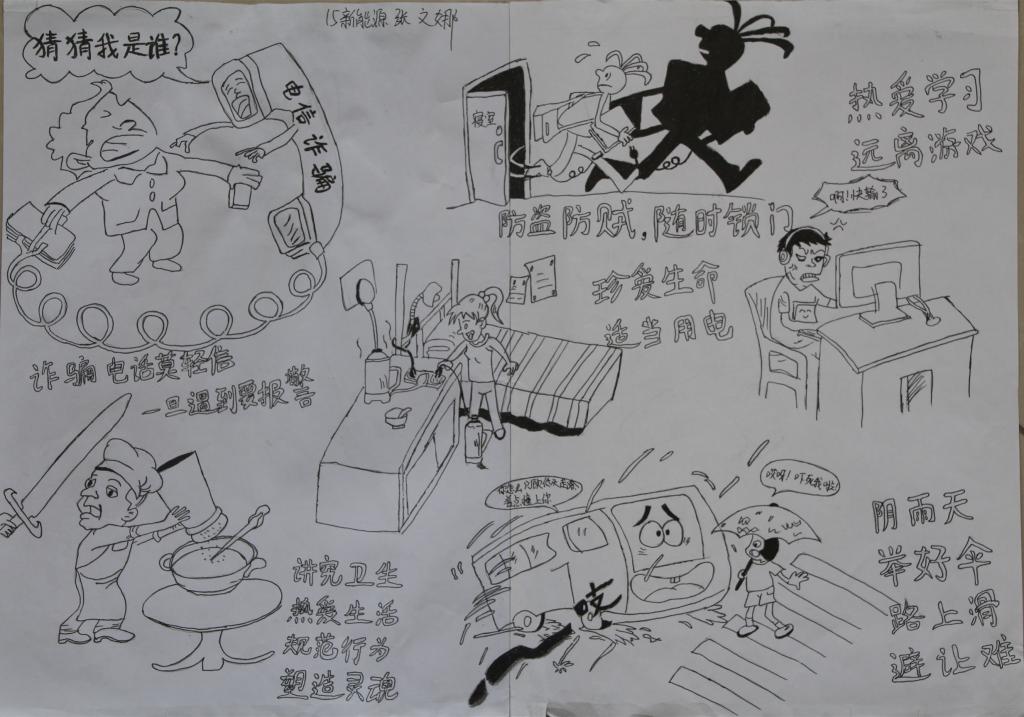 15新能源 张文娜
猜猜我是谁?
电信诈骗
诈骗电话莫轻信
一旦遇到要报警
寝室
防盗防贼,随时锁门
热爱学习
远离游戏
啊!快输了
珍爱生命
适当用电
讲究卫生
热爱生活
规范行为
塑造灵魂
差点撞上你
哎呀!吓死我啦!
吱
阴雨天
举好伞
路上滑
避让难